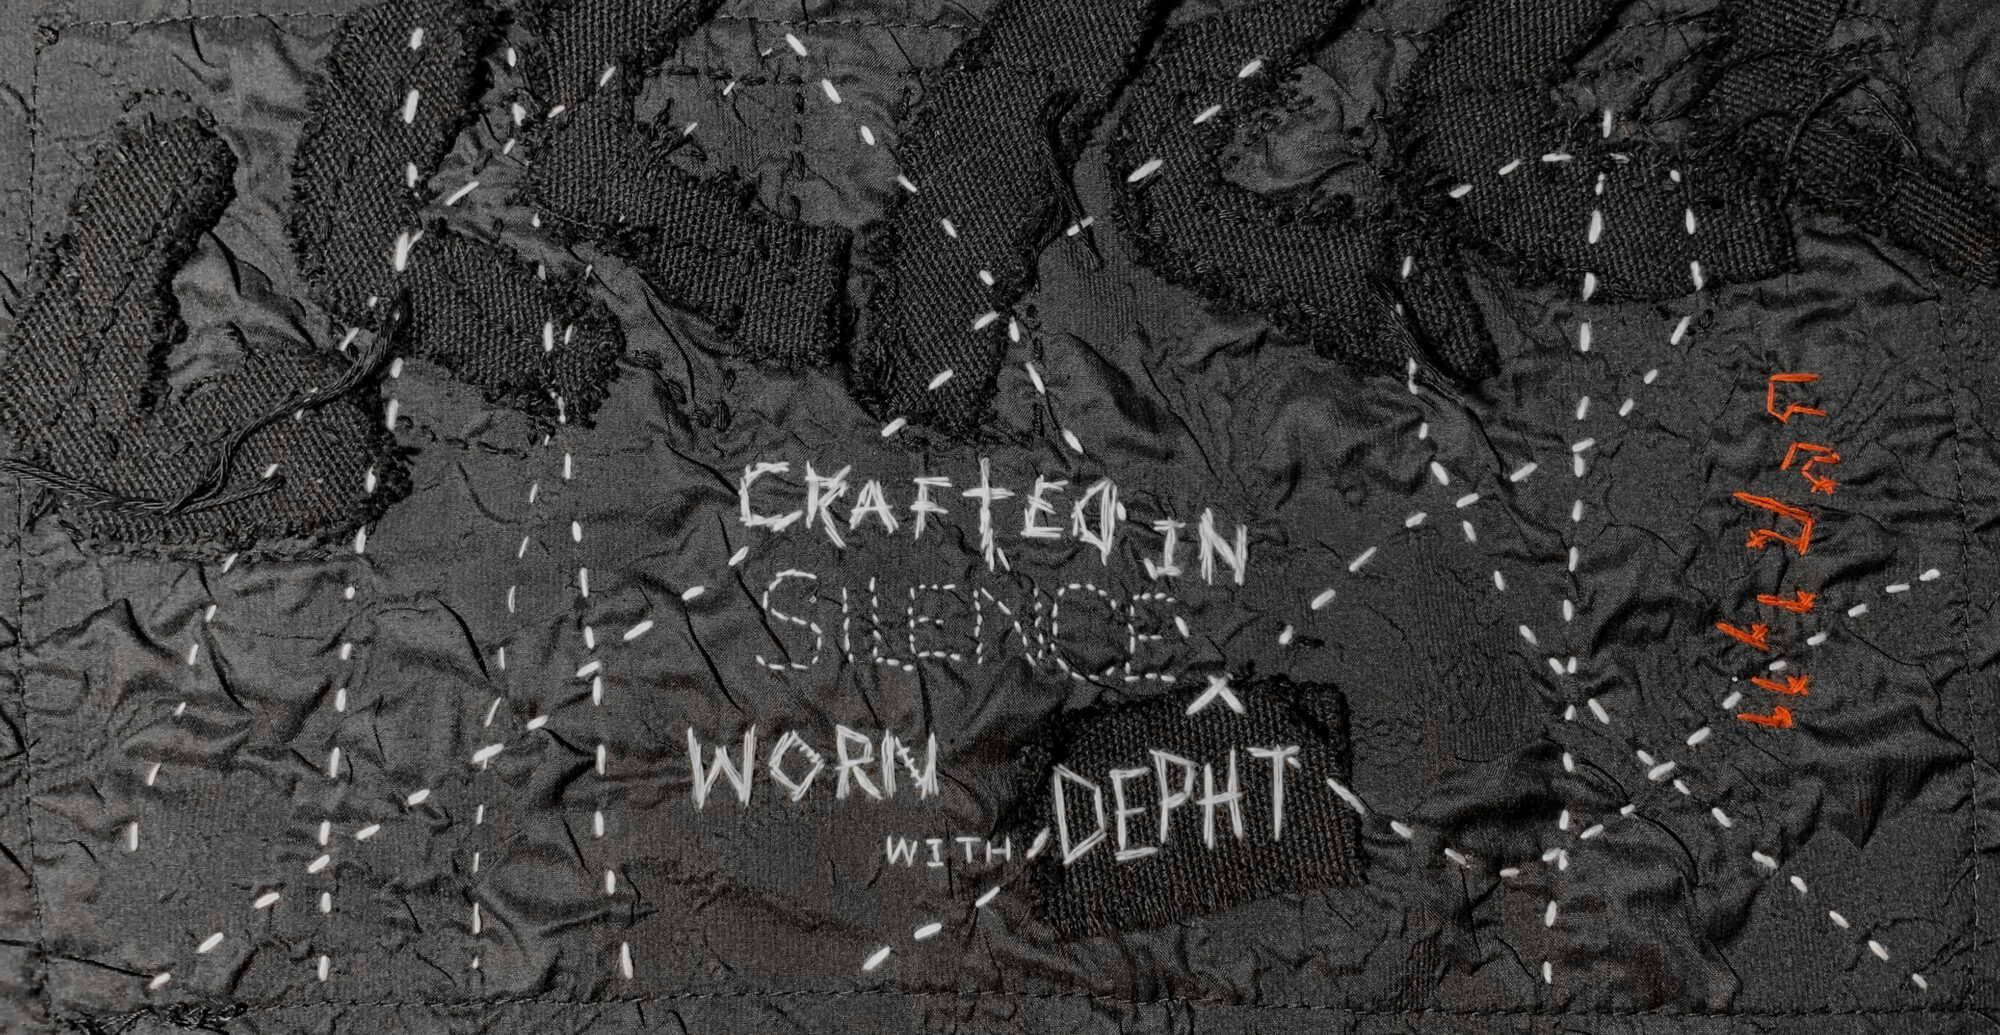 CRAFTED IN
SILENCE
WORN
WITH DEPHT